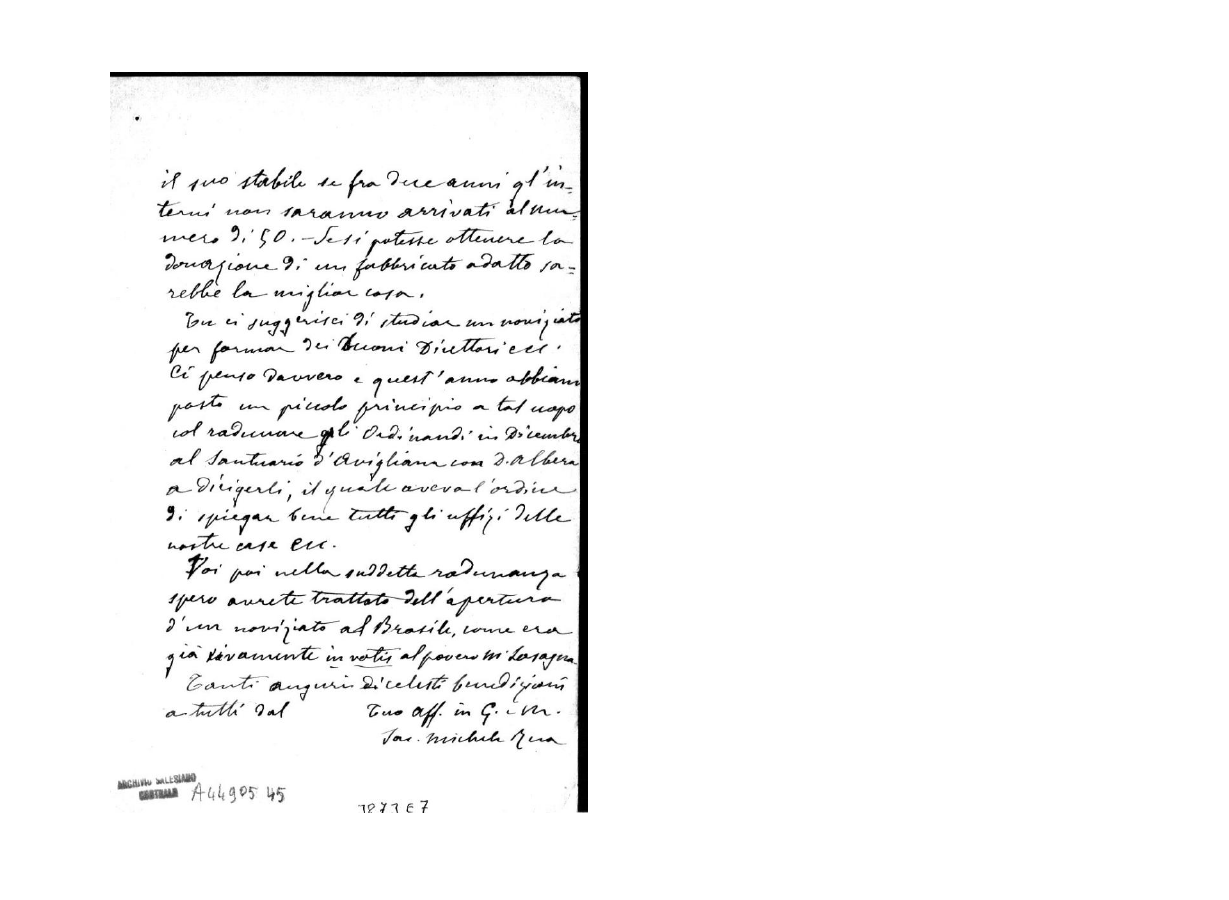 il suo stabile se fra due anni gl'in=
terni non saranno arrivati al nu=
mero di 50. - Se si potesse ottenere la
donazione di un fabbricato adatto sa=
rebbe la miglior cosa.
Tu ci suggerisci di studiar un noviziato
per formar dei buoni Direttori ecc.
Ci penso davvero e quest'anno abbiam
posto un piccolo principio a tal uopo
col radunare gli Ordinandi in Dicembre
al Santuario d'Avigliana con D. Albera
a dirigerli, il quale aveva l'ordine
di spiegar bene tutti gli uffizi delle
nostre case ecc.
Voi poi nella suddetta radunanza
spero avrete trattato dell'apertura
d'un noviziato al Brasile, come era
già vivamente in votis al povero M. Lasagna
Tanti auguri di celesti benedizioni
a tutti dal Tuo aff. in G. e M.
Sac. Michele Rua
ARCHIVIO SALESIANO
CENTRALE A44905 45